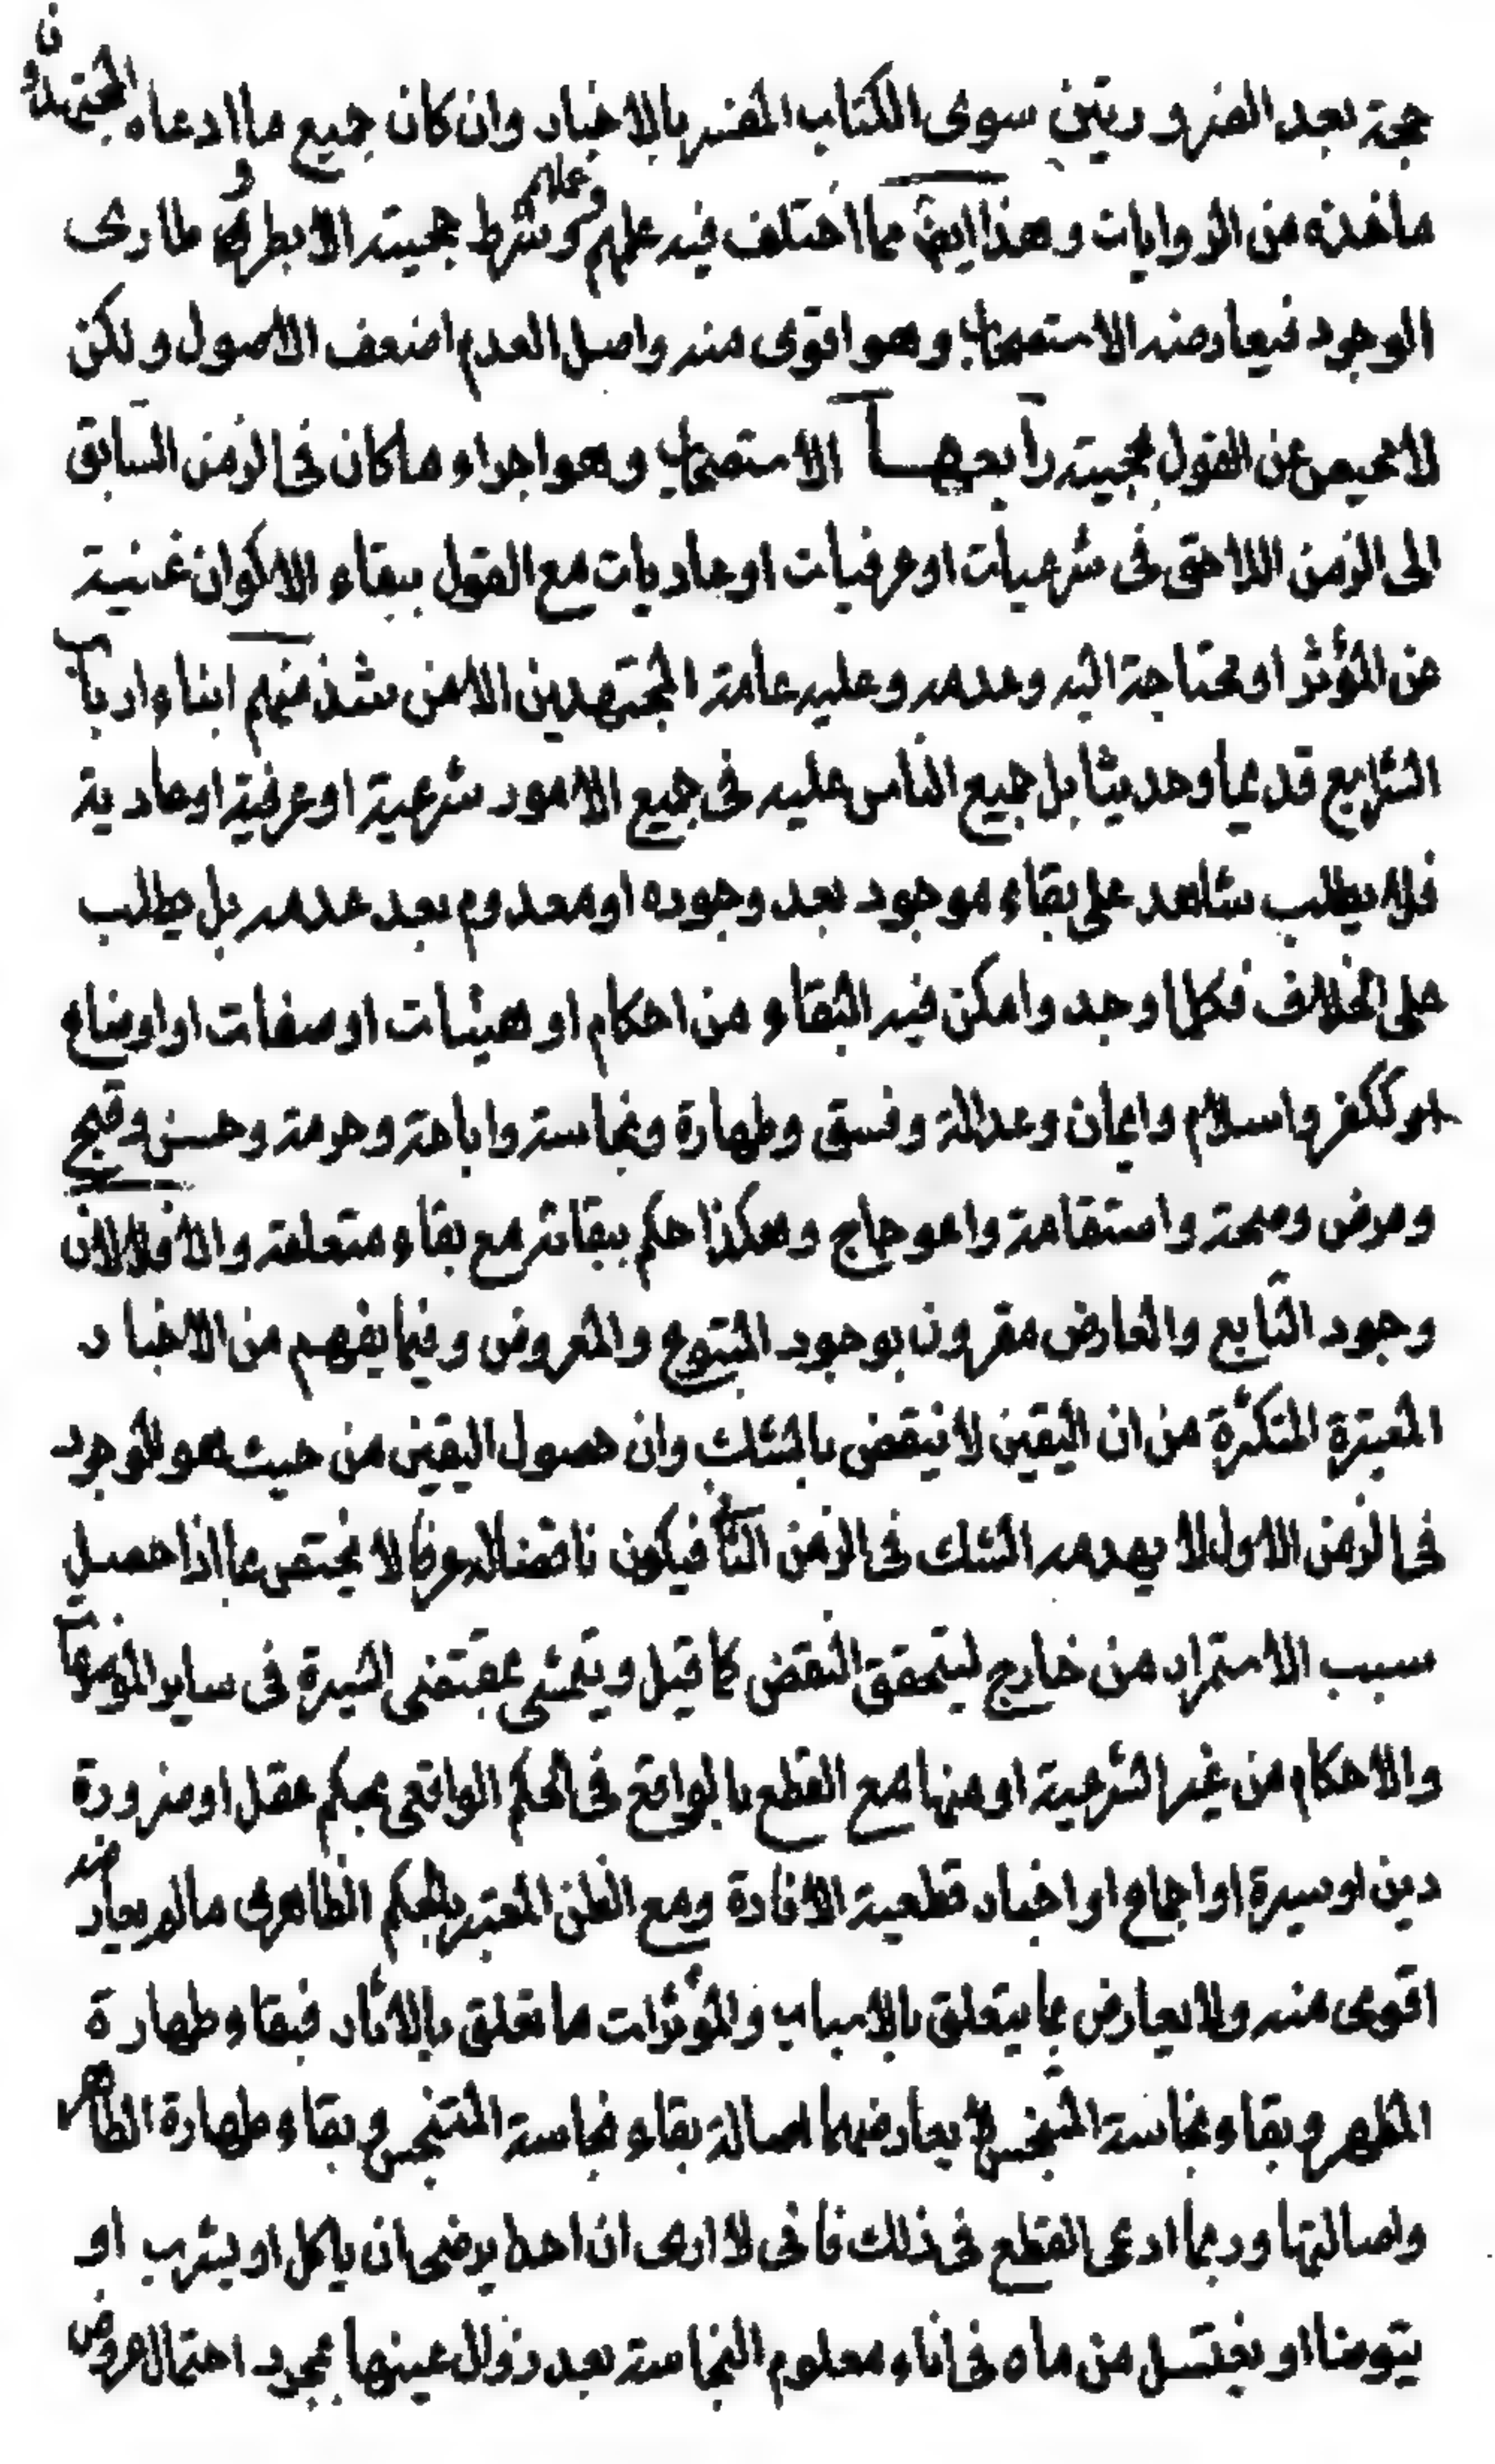 حجة بعد الضروريتين سوى الكتاب المفسر بالاخبار وان كان جميع ما ادعاه المجتهدون
ماخذه من الروايات وهذا ايضا مما اختلف فيه علمهم وعملهم وشرط حجيته الا بطروه طارى
الوجود فيعارضه الاستصحاب وهو اقوى منه واصل العدم اضعف الاصول ولكن
لا محيص عن القول بحجيته رابعها الاستصحاب وهو اجراء ما كان فى الزمن السابق
الى الزمن اللاحق فى شرعيات او عرفيات او عاديات مع القول ببقاء الاكوان غنية
عن المؤثر او محتاجة اليه وعدمه وعليه عامة المجتهدين الا من شذ منهم ابناء ارباب
الشرايع قديما وحديثا بل جميع الناس عليه فى جميع الامور شرعية او عرفية او عادية
فلا يطلب شاهد على بقاء موجود بعد وجوده او معدوم بعد عدمه بل يطلب
على الخلاف فكلما وجد وامكن فيه البقاء من احكام او هيئات او صفات او اوضاع
ككفر واسلام وايمان وعدالة وفسق وطهارة ونجاسة واباحة وحرمة وحسن وقبح
ومرض وصحة واستقامة واعوجاج وهكذا حكم ببقائه مع بقاء متعلقه والا فلا لان
وجود التابع والعارض مقرون بوجود المتبوع والمعروض وفيما يفهم من الاخبار
المعتبرة المتكررة من ان اليقين لا ينقض بالشك وان حصول اليقين من حيث هو للوجود
فى الزمن الاول لا يهدمه الشك فى الزمن الثانى فيكون ناقضا له عرفا لا يختص بما اذا حصل
سبب الاستمرار من خارج ليتحقق النقض كما قيل ويتمشى بمقتضى السيرة فى ساير الموضوعات
والاحكام من غير الشرعية او منها مع القطع بالواقع فى الحكم الواقعى بحكم عقل او ضرورة
دين او سيرة او اجماع او اخبار قطعية الافادة ومع الظن المعتبر بالحكم الظاهرى ما لم يعارضه
اقوى منه ولا يعارض بما يتعلق بالاسباب والمؤثرات ما تعلق بالاثار فبقاء طهارة
المطهر وبقاء نجاسة المنجس لا يعارضهما اصالة بقاء نجاسة المتنجس وبقاء طهارة الطاهر
واصالتها وربما ادعى القطع فى ذلك فانى لا ارى ان احدا يرضى ان ياكل او يشرب او
يتوضا او يغتسل من ماء فى اناء معلوم النجاسة بعد زوال عينها بمجرد احتمال عروض